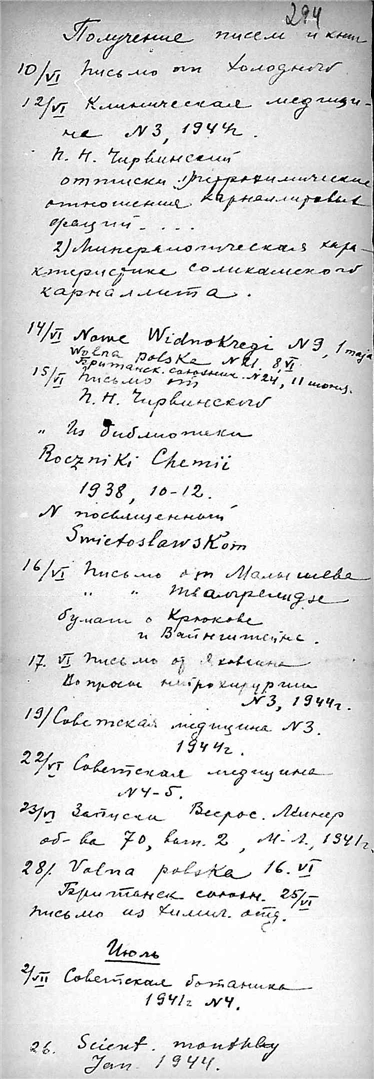 294
Получение писем и книг
10/VI Письмо от Холодного
12/VI Клиническая медици-
на N3, 1944г.
П. Н. Чирвинский
оттиски 1) Петрохимические
отношения карналлитовых
фаций . . . .
2) Минералогическая хара-
ктеристике соликамского
карналлита.
14/VI Nowe Widnokręgi N9, 1 maja
Wolna polska N21. 8/VI
Британск. союзник N24, 11 июня.
15/VI Письмо от
П. Н. Чирвинского
" Из библиотеки
Roczniki Chemii
1938, 10-12.
N посвященный
Swietoslawskom
16/VI Письмо от Малышева
" " Твалчрелидзе
бумаги о Крюкове
и Вайнштейне.
17. VI Письмо от Яковкина
Вопросы нейрохирургии
N3, 1944г.
19/ Советская медицина N3.
1944г.
22/VI Советская медицина
N4-5.
23/VI Записки Верос. Минер
об-ва 70, вып. 2, М.-Л., 1941г.
28/. Volna polska 16. VI
Британск союзн. 25/VI
Письмо из химич. отд.
Июль
2/VII Советская ботаника
1941г N4.
26. Scient. monthly
Jan. 1944.